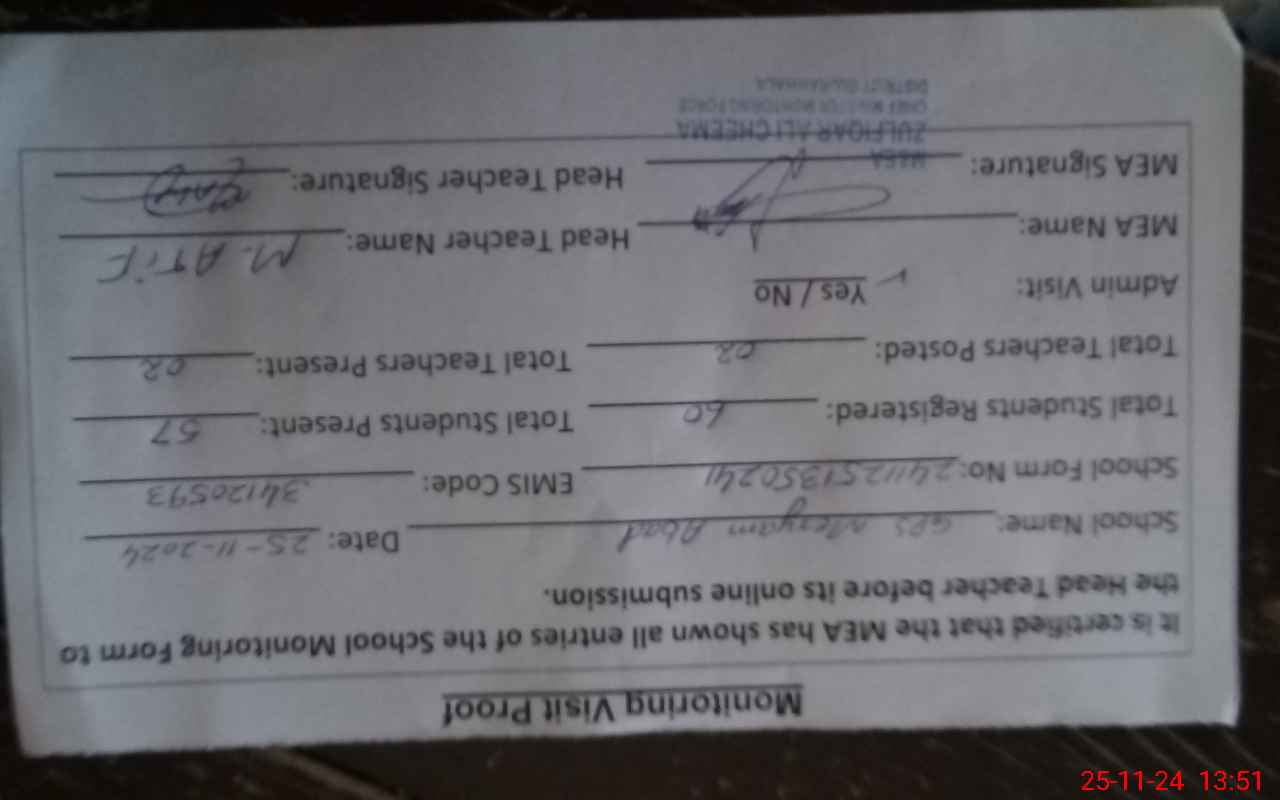 Monitoring Visit Proof
It is certified that the MEA has shown all entries of the School Monitoring Form to
the Head Teacher before its online submission.
School Name: GPS Meryam Abad Date: 25-11-2024
School Form No: 24112513502411 EMIS Code: 34120593
Total Students Registered: 60 Total Students Present: 57
Total Teachers Posted: 02 Total Teachers Present: 02
Admin Visit: ✓ Yes / No
MEA Name: Head Teacher Name: M. ATIF
MEA Signature: Head Teacher Signature:
ZULFIQAR ALI CHEEMA
CHIEF MINISTER MONITORING FORCE
DISTRICT GUJRANWALA
25-11-24 13:51